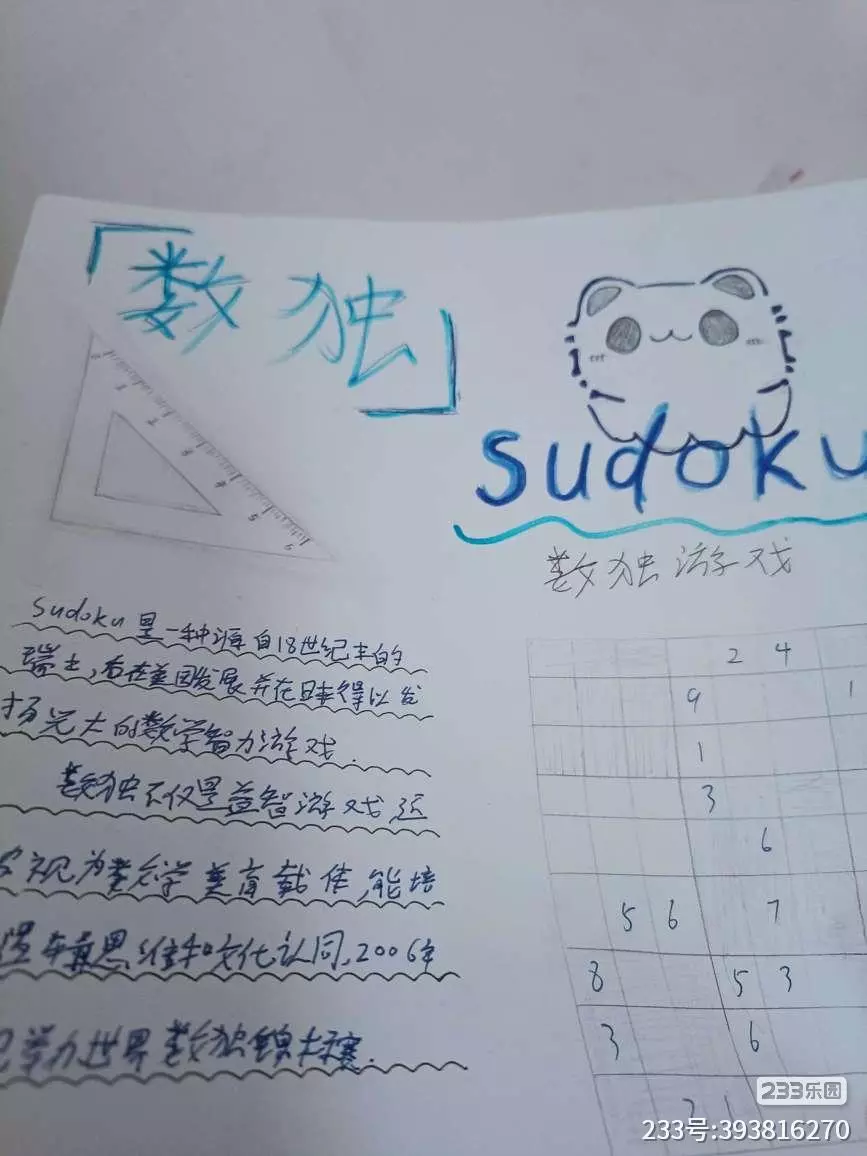 「数独」
sudoku
数独游戏
sudoku是一种源自18世纪末的
瑞士,后在美国发展并在日本得以发
扬光大的数学智力游戏.
数独不仅是益智游戏,还
视为数学美育载体,能培
思维和文化认同,2006年
举办世界数独锦标赛.
1 2 3 4 5 6
2 4
9 1
1
3
6
5 6 7
8 5 3
3 6
2 1
233乐园
233号:393816270